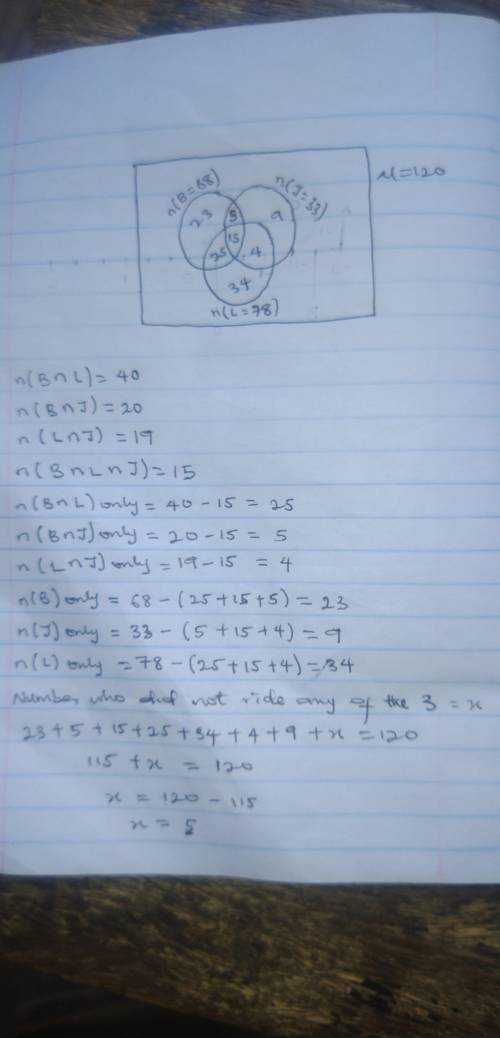 μ=120
n(B=68)
n(J=33)
23
5
9
15
25
4
34
n(L=78)
n(B∩L)=40
n(B∩J)=20
n(L∩J)=19
n(B∩L∩J)=15
n(B∩L) only = 40-15 = 25
n(B∩J) only = 20-15 = 5
n(L∩J) only = 19-15 = 4
n(B) only = 68-(25+15+5) = 23
n(J) only = 33-(5+15+4) = 9
n(L) only = 78-(25+15+4) = 34
Number who did not ride any of the 3 = x
23+5+15+25+34+4+9+x=120
115+x = 120
x = 120-115
x = 5